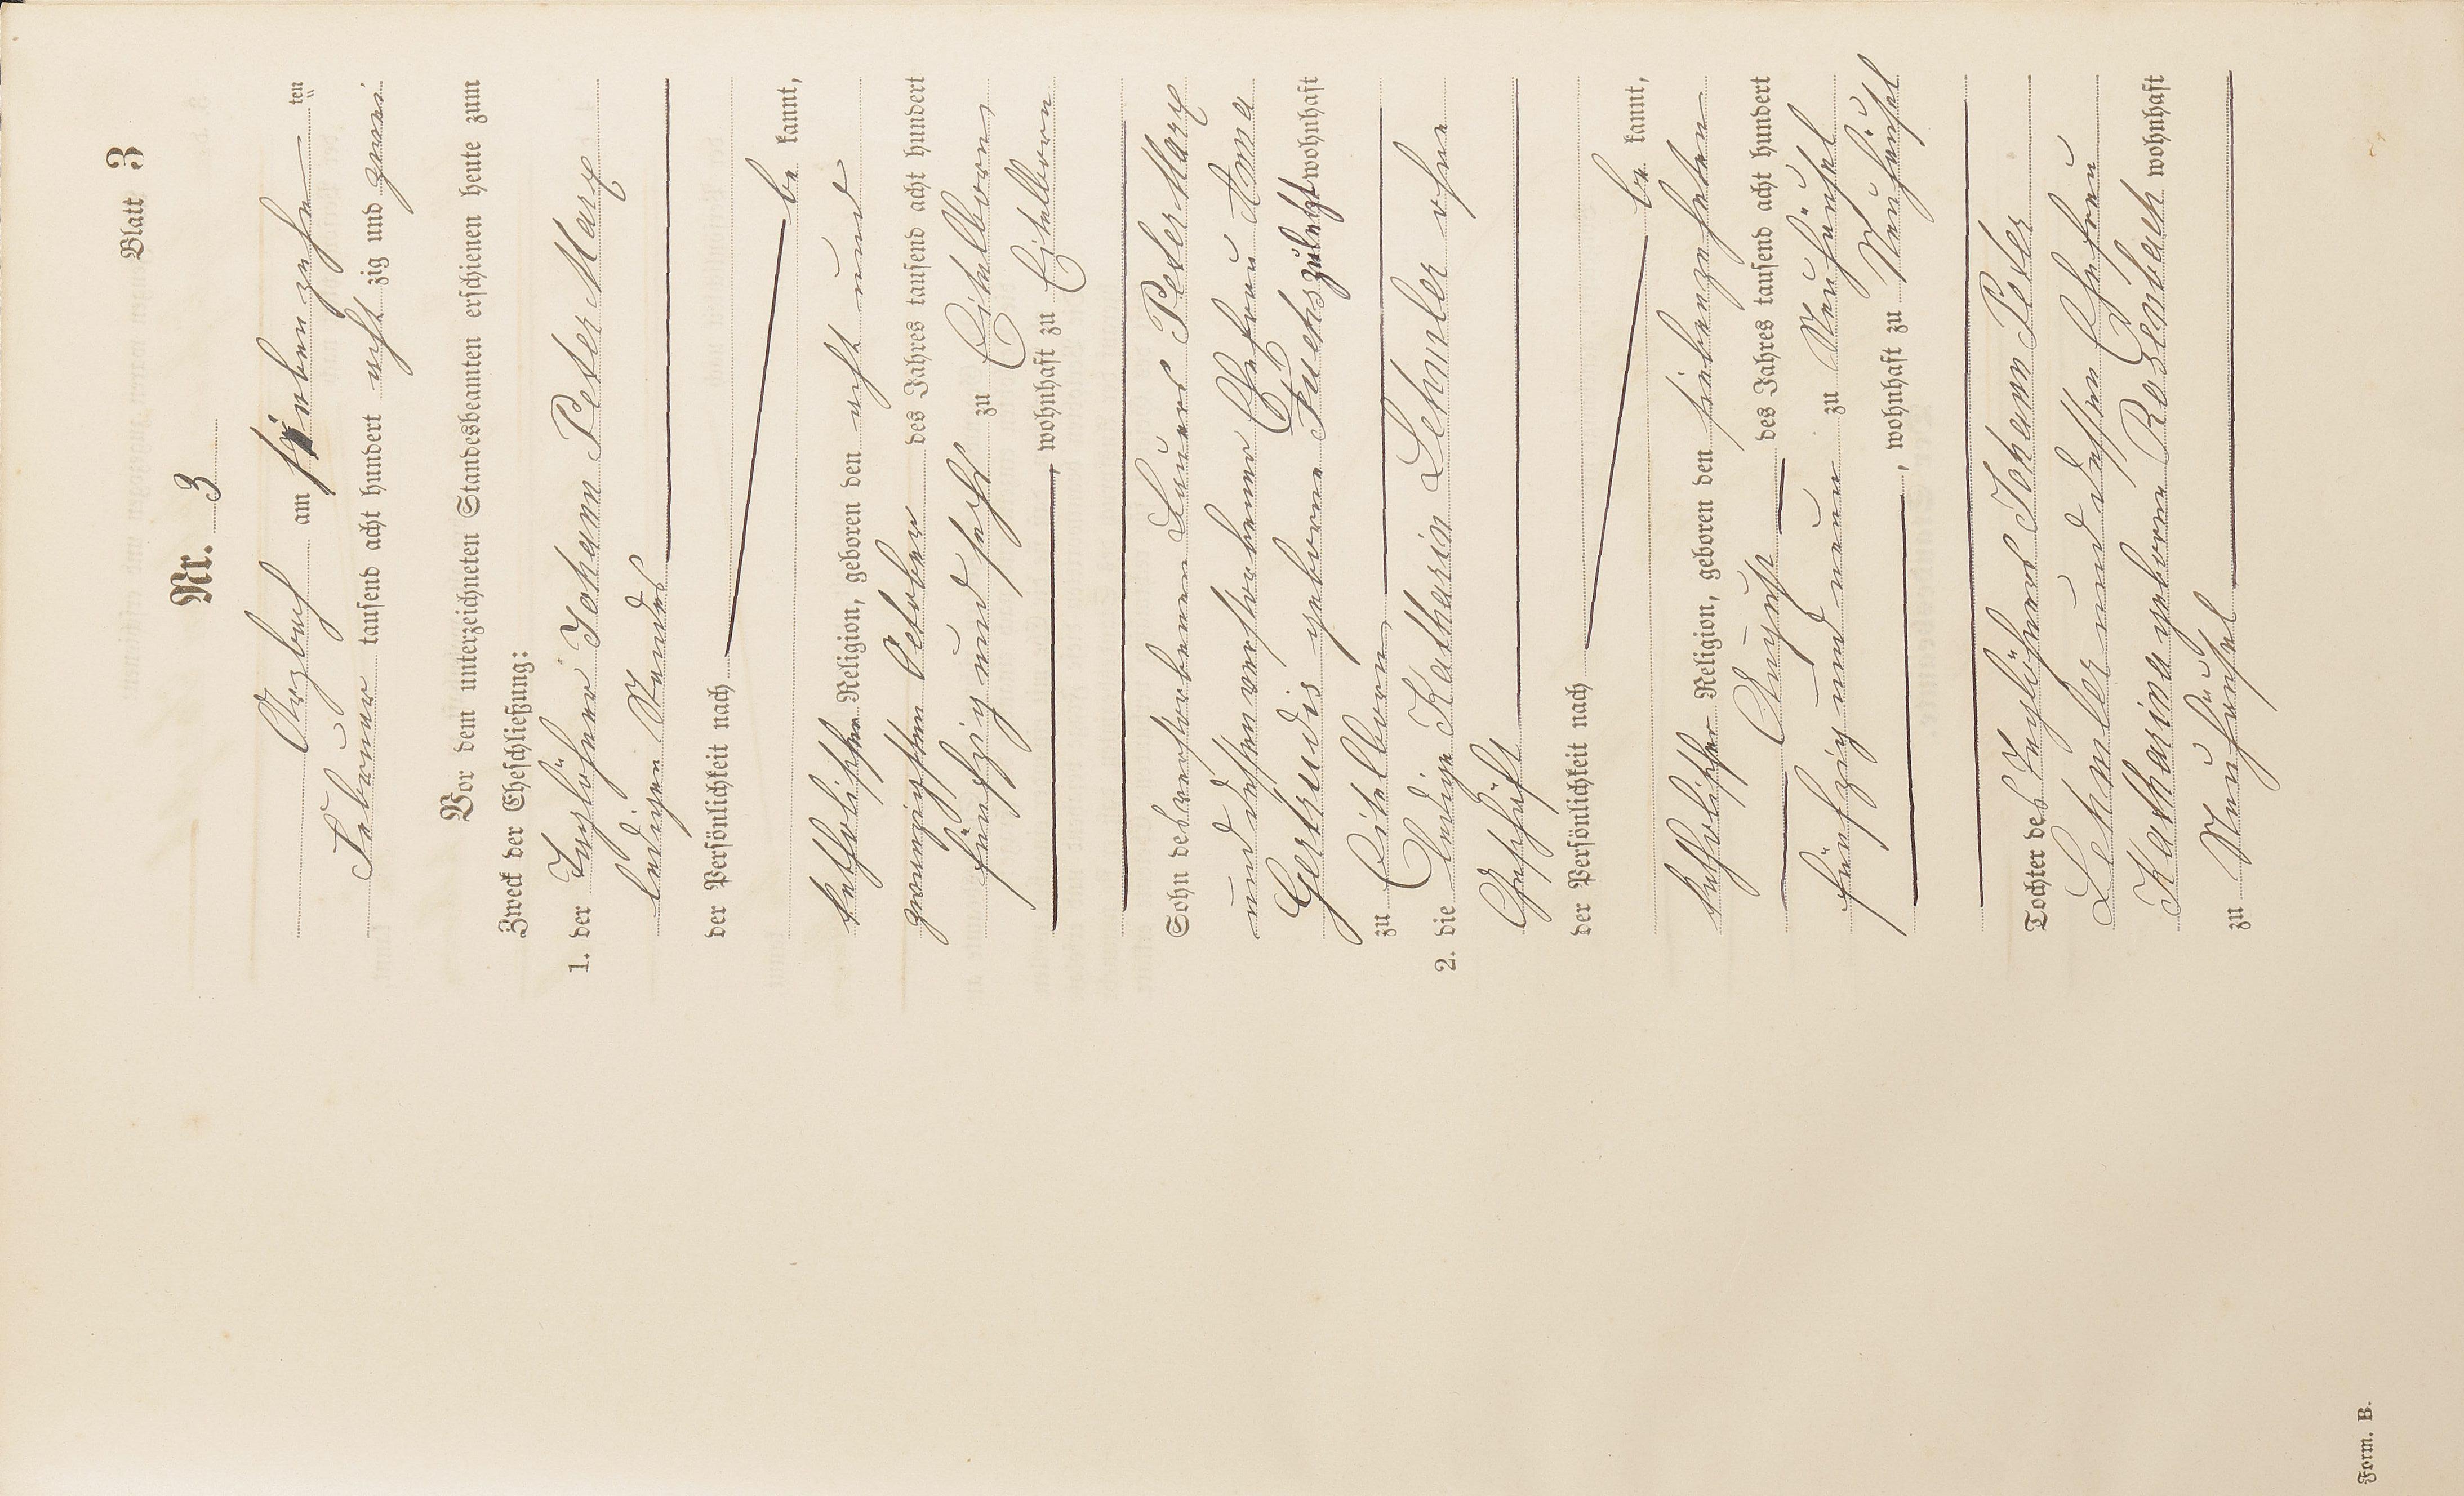 Blatt 3
Nr. 3
Arzbach am siebenzehn ten
Februar tausend acht hundert acht zig und zwei
Vor dem unterzeichneten Standesbeamten erschienen heute zum
Zweck der Eheschließung:
1. der Taglöhner Johann Peter Marx
ledigen Standes
der Persönlichkeit nach
be kannt,
katholischer Religion, geboren den acht und
zwanzigsten October des Jahres tausend acht hundert
fünfzig und sechs zu Eitelborn
, wohnhaft zu Eitelborn
Sohn des verstorbenen Peter Marx
und dessen verstorbener Ehefrau Anna
Gertrudis geborne Fuchs zuletzt wohnhaft
zu Eitelborn
2. die ledige Katharin Lehmler ohne
Geschäft
der Persönlichkeit nach
be kannt,
katholischer Religion, geboren den siebenzehnten
August des Jahres tausend acht hundert
fünfzig und neun zu Neuhäusel
, wohnhaft zu Neuhäusel
Tochter des Taglöhners Johann Peter
Lehmler und dessen Ehefrau
Katharina geborne Roßenbach wohnhaft
zu Neuhäusel
Form. B.